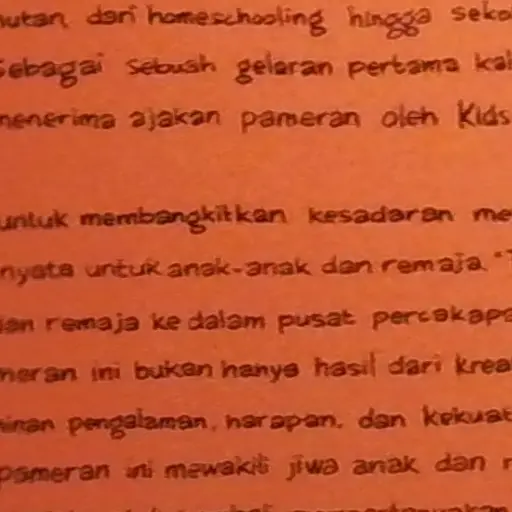 hutan, dari homeschooling hingga seko
Sebagai sebuah gelaran pertama kal
menerima ajakan pameran oleh Kids
untuk membangkitkan kesadaran me
nyata untuk anak-anak dan remaja. "T
dan remaja ke dalam pusat percakapa
meran ini bukan hanya hasil dari krea
inan pengalaman, harapan, dan kekuat
pameran ini mewakili jiwa anak dan r